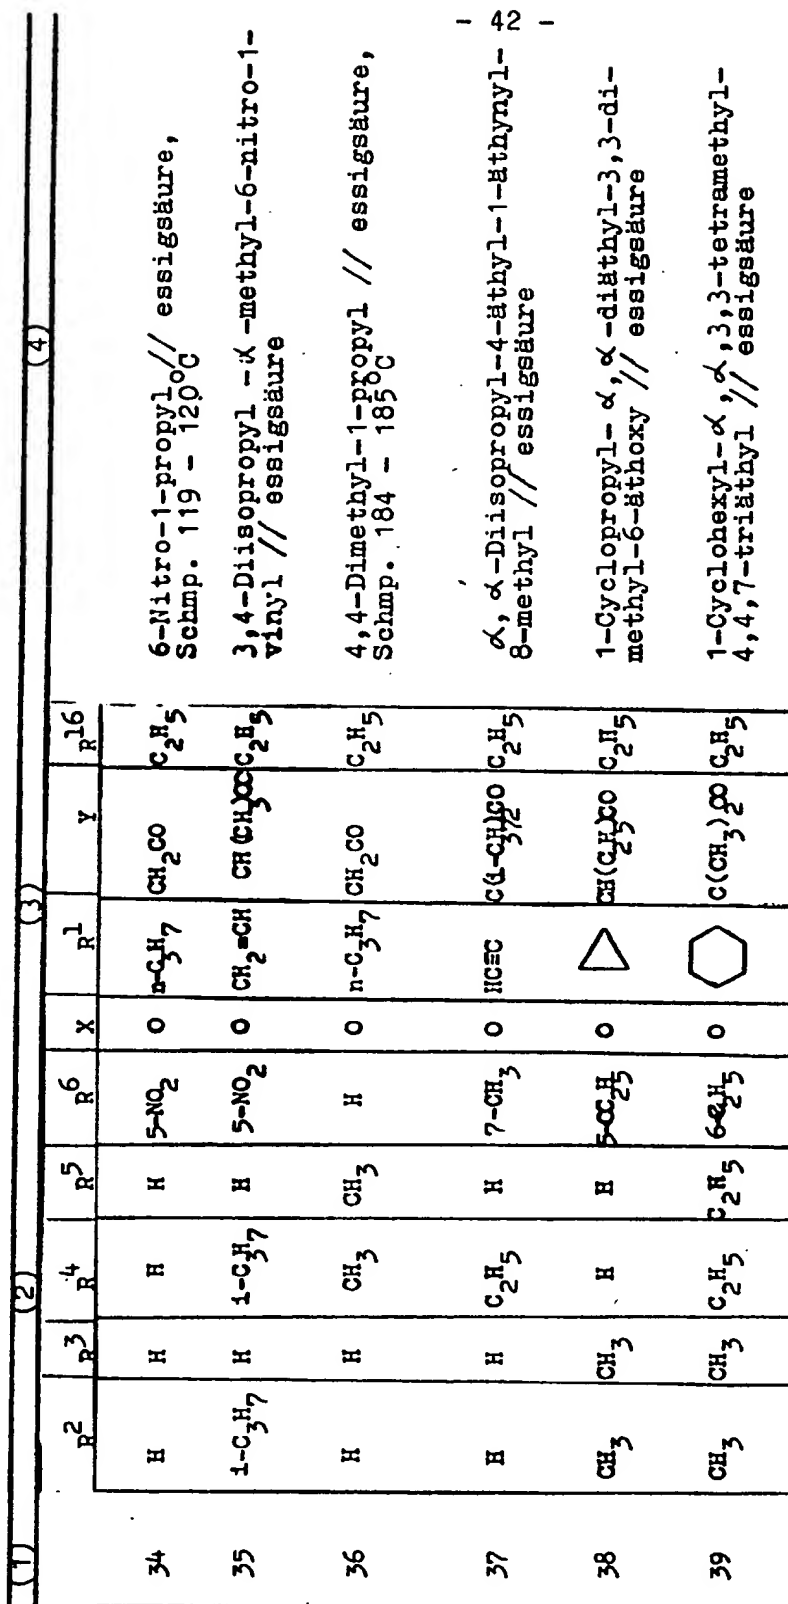 - 42 -
(1) (2) (3) (4)
R2 R3 R4 R5 R6 X R1 Y R16
34 H H H H 5-NO2 O n-C3H7 CH2CO C2H5 6-Nitro-1-propyl // essigsäure,
Schmp. 119 - 120°C
35 i-C3H7 H i-C3H7 H 5-NO2 O CH2=CH CH(CH3)CO C2H5 3,4-Diisopropyl -α -methyl-6-nitro-1-
vinyl // essigsäure
36 H H CH3 CH3 H O n-C3H7 CH2CO C2H5 4,4-Dimethyl-1-propyl // essigsäure,
Schmp. 184 - 185°C
37 H H C2H5 H 7-CH3 O HC≡C C(i-CH3)72CO C2H5 α, α-Diisopropyl-4-äthyl-1-äthynyl-
8-methyl // essigsäure
38 CH3 CH3 H H 5-OC2H5 O CH(C2H5)CO C2H5 1-Cyclopropyl- α, α -diäthyl-3,3-di-
methyl-6-äthoxy // essigsäure
39 CH3 CH3 C2H5 C2H5 6-C2H5 O C(CH3)2CO C2H5 1-Cyclohexyl-α, α,3,3-tetramethyl-
4,4,7-triäthyl // essigsäure